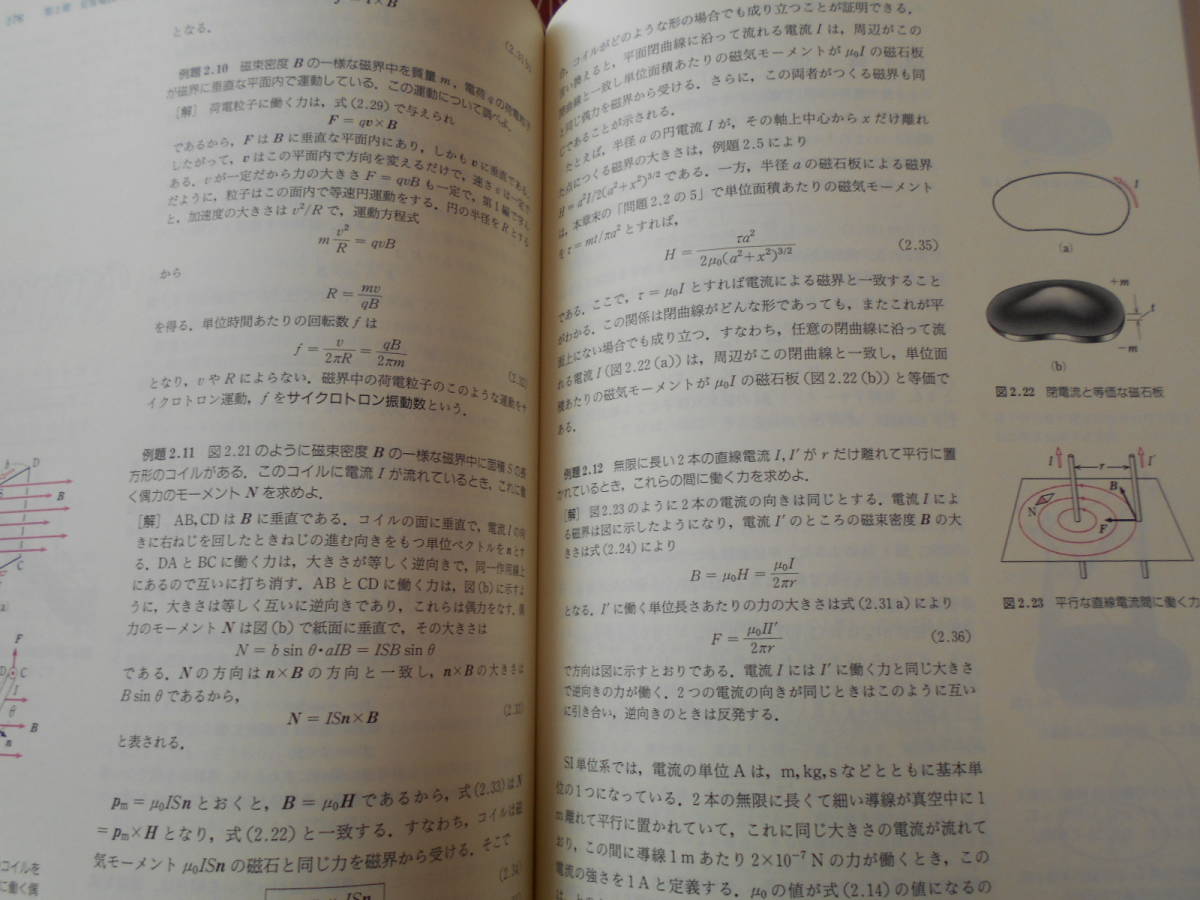 176
となる．
例題2.10 磁束密度 B の一様な磁界中を質量 m，電荷 q の荷電粒子
が磁界に垂直な平面内で運動している．この運動について調べよ．
［解］ 荷電粒子に働く力は，式(2.29)で与えられ
F = qv×B
であるから，F は B に垂直な平面内にあり，しかも v に垂直である．
したがって，v はこの平面内で方向を変えるだけで，速さ v は一定で
ある．v が一定だから力の大きさ F = qvB も一定で，第1編で学ん
だように，粒子はこの面内で等速円運動をする．円の半径を R とする
と，加速度の大きさは v²/R で，運動方程式
m v²/R = qvB
から
R = mv/qB
を得る．単位時間あたりの回転数 f は
f = v/2πR = qB/2πm
(2.32)
となり，v や R によらない．磁界中の荷電粒子のこのような運動をサ
イクロトロン運動，f をサイクロトロン振動数という．
例題2.11 図2.21のように磁束密度 B の一様な磁界中に面積 S の長
方形のコイルがある．このコイルに電流 I が流れているとき，これに働
く偶力のモーメント N を求めよ．
［解］ AB, CD は B に垂直である．コイルの面に垂直で，電流 I の向
きに右ねじを回したときねじの進む向きをもつ単位ベクトルを n とす
る．DA と BC に働く力は，大きさが等しく逆向きで，同一作用線上
にあるので互いに打ち消す．AB と CD に働く力は，図(b)に示すよ
うに，大きさは等しく互いに逆向きであり，これらは偶力をなす．偶
力のモーメント N は図(b)で紙面に垂直で，その大きさは
N = b sin θ・aIB = ISB sin θ
である．N の方向は n×B の方向と一致し，n×B の大きさは
B sin θ であるから，
N = ISn×B
(2.33)
と表される．
pm = μ0ISn とおくと，B = μ0H であるから，式(2.33)は N
= pm×H となり，式(2.22)と一致する．すなわち，コイルは磁
気モーメント μ0ISn の磁石と同じ力を磁界から受ける．そこで
(2.34)
b
D
B
C
F
D
C
I
θ
B
n
コイルを
に働く偶
合，コイルがどのような形の場合でも成り立つことが証明できる．
言い換えると，平面閉曲線に沿って流れる電流 I は，周辺がこの
閉曲線と一致し単位面積あたりの磁気モーメントが μ0I の磁石板
と同じ偶力を磁界から受ける．さらに，この両者がつくる磁界も同
じであることが示される．
たとえば，半径 a の円電流 I が，その軸上中心から x だけ離れ
た点につくる磁界の大きさは，例題2.5により
H = a²I/2(a²+x²)3/2 である．一方，半径 a の磁石板による磁界
は，本章末の「問題2.2の5」で単位面積あたりの磁気モーメント
を τ = mt/πa² とすれば，
H = τa²/2μ0(a²+x²)3/2 (2.35)
である．ここで，τ = μ0I とすれば電流による磁界と一致すること
がわかる．この関係は閉曲線がどんな形であっても，またこれが平
面上にない場合でも成り立つ．すなわち，任意の閉曲線に沿って流
れる電流 I (図2.22(a))は，周辺がこの閉曲線と一致し，単位面
積あたりの磁気モーメントが μ0I の磁石板(図2.22(b))と等価で
ある．
例題2.12 無限に長い2本の直線電流 I, I′ が r だけ離れて平行に置
かれているとき，これらの間に働く力を求めよ．
［解］ 図2.23のように2本の電流の向きは同じとする．電流 I によ
る磁界は図に示したようになり，電流 I′ のところの磁束密度 B の大
きさは式(2.24)により
B = μ0H = μ0I/2πr
となる．I′ に働く単位長さあたりの力の大きさは式(2.31 a)により
F = μ0II′/2πr (2.36)
で方向は図に示すとおりである．電流 I には I′ に働く力と同じ大きさ
で逆向きの力が働く．2つの電流の向きが同じときはこのように互い
に引き合い，逆向きのときは反発する．
SI単位系では，電流の単位 A は，m, kg, s などとともに基本単
位の1つになっている．2本の無限に長くて細い導線が真空中に1
m 離れて平行に置かれていて，これに同じ大きさの電流が流れて
おり，この間に導線1 m あたり 2×10⁻⁷ N の力が働くとき，この
電流の強さを1 A と定義する．μ0 の値が式(2.14)の値になるの
I
(a)
+m
t
−m
(b)
図2.22 閉電流と等価な磁石板
I
r
I′
B
N
F
図2.23 平行な直線電流間に働く力